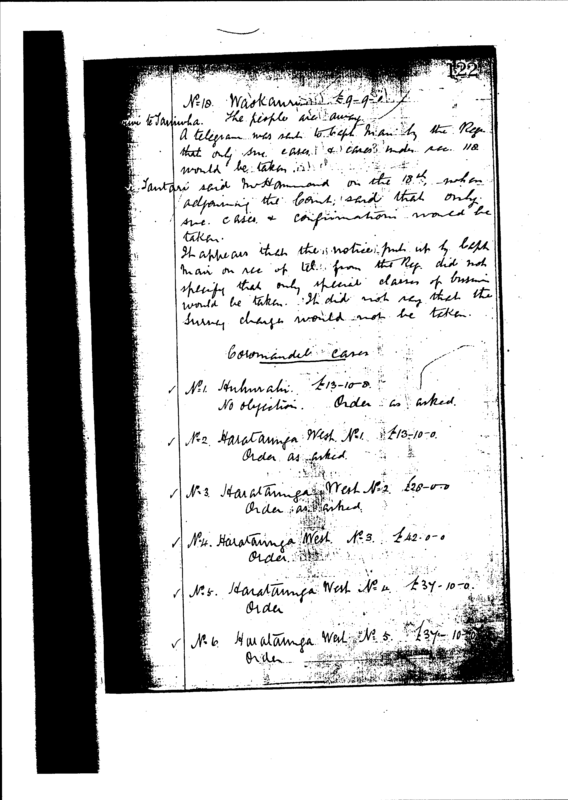 122
No 18. Waikauri £9-9-
to Taniwha. The people are away
A telegram was sent to Capt Mair by the Reg
that only suc. cases & cases under sec. 118
would be taken
Tautari said Mr Hammond on the 18th when
adjourning the Court, said that only
suc. cases & confirmations would be
taken.
It appears that the notice put up by Capt
Mair on rec of tel. from the Reg did not
specify that only special classes of business
would be taken. It did not say that the
Survey charges would not be taken.
Coromandel cases
✓ No 1. £13-10-0.
No objection. Order as asked.
✓ No 2 Harataunga West No 1. £13-10-0.
Order as asked.
✓ No 3 Harataunga West No 2 £28-0-0
Order as asked
✓ No 4. Harataunga West No 3. £42-0-0
Order.
✓ No 5. Harataunga West No 4. £37-10-0.
Order
✓ No 6 Harataunga West No 5. £37-10-
Order